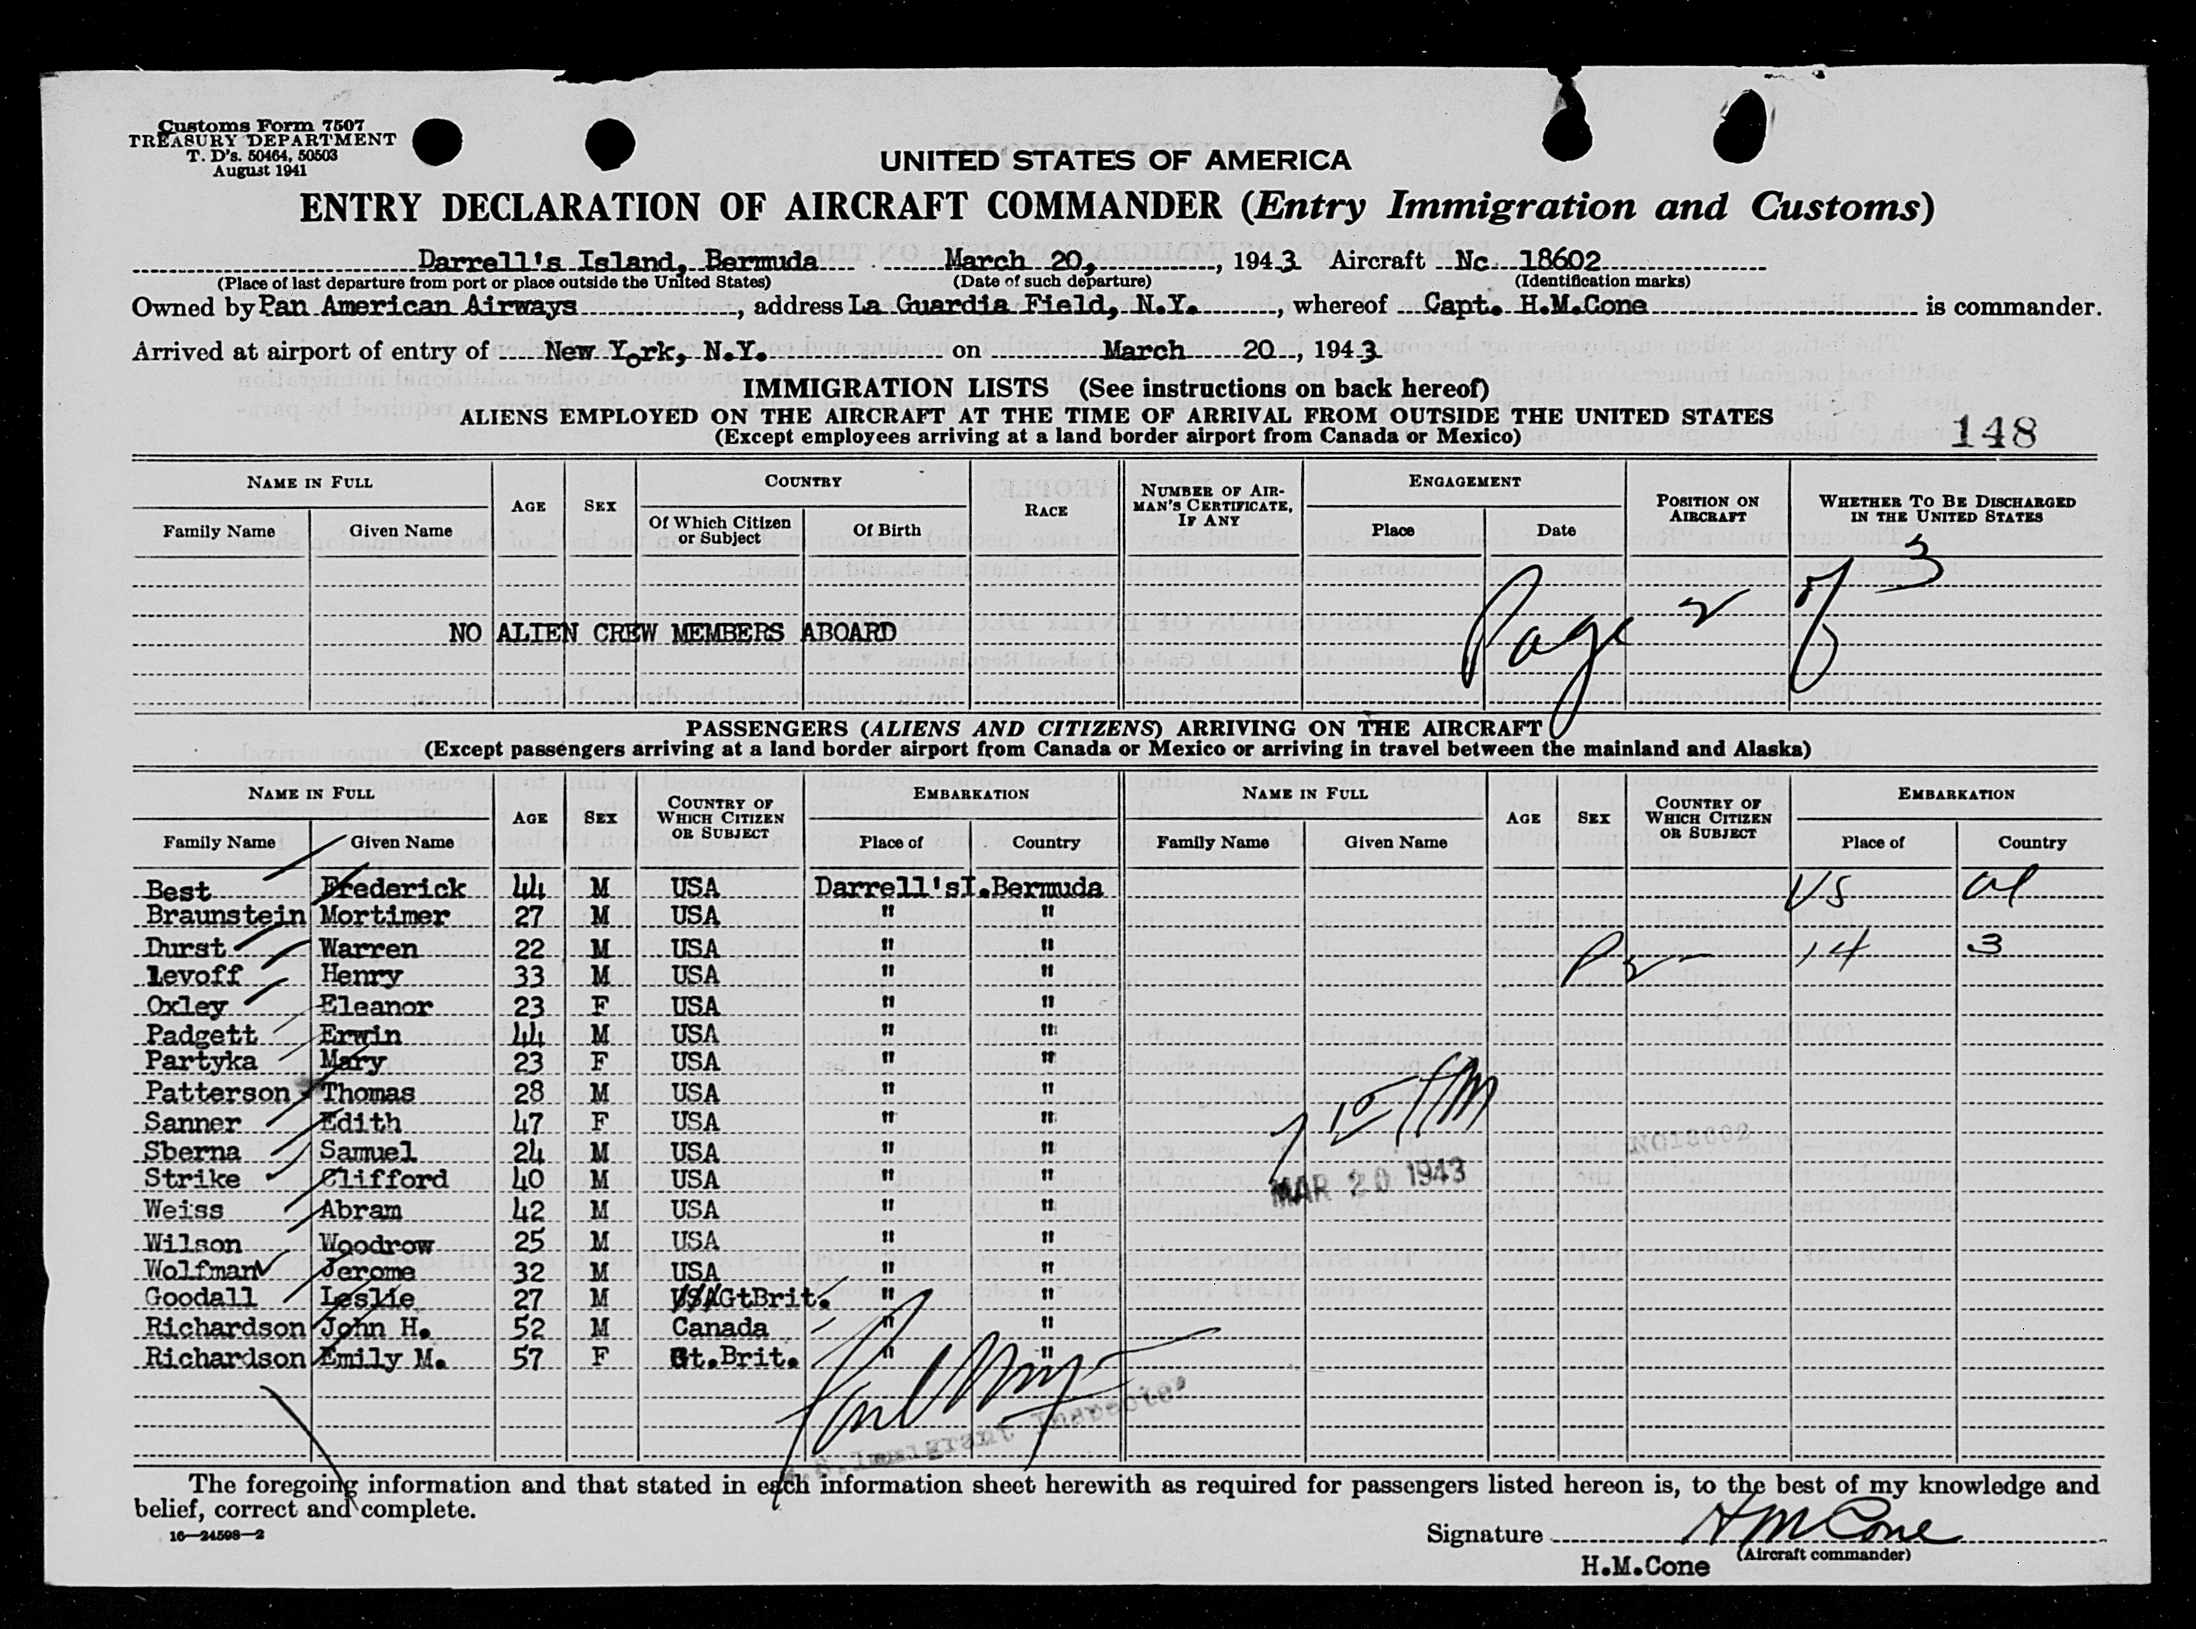 Customs Form 7507
TREASURY DEPARTMENT
T. D's. 50464, 50503
August 1941
UNITED STATES OF AMERICA
ENTRY DECLARATION OF AIRCRAFT COMMANDER (Entry Immigration and Customs)
Darrell's Island, Bermuda March 20, , 1943 Aircraft Nc 18602
(Place of last departure from port or place outside the United States) (Date of such departure) (Identification marks)
Owned by Pan American Airways, address La Guardia Field, N.Y., whereof Capt. H.M.Cone is commander.
Arrived at airport of entry of New York, N.Y. on March 20, 1943
IMMIGRATION LISTS (See instructions on back hereof)
ALIENS EMPLOYED ON THE AIRCRAFT AT THE TIME OF ARRIVAL FROM OUTSIDE THE UNITED STATES
(Except employees arriving at a land border airport from Canada or Mexico)
148
NAME IN FULL AGE SEX COUNTRY RACE NUMBER OF AIRMAN'S CERTIFICATE, IF ANY ENGAGEMENT POSITION ON AIRCRAFT WHETHER TO BE DISCHARGED IN THE UNITED STATES
Family Name Given Name Of Which Citizen or Subject Of Birth Place Date
Page 2 of 3
NO ALIEN CREW MEMBERS ABOARD
PASSENGERS (ALIENS AND CITIZENS) ARRIVING ON THE AIRCRAFT
(Except passengers arriving at a land border airport from Canada or Mexico or arriving in travel between the mainland and Alaska)
NAME IN FULL AGE SEX COUNTRY OF WHICH CITIZEN OR SUBJECT EMBARKATION NAME IN FULL AGE SEX COUNTRY OF WHICH CITIZEN OR SUBJECT EMBARKATION
Family Name Given Name Place of Country Family Name Given Name Place of Country
Best Frederick 44 M USA Darrell'sI. Bermuda US
Braunstein Mortimer 27 M USA " "
Durst Warren 22 M USA " " 14 3
Levoff Henry 33 M USA " "
Oxley Eleanor 23 F USA " "
Padgett Erwin 44 M USA " "
Partyka Mary 23 F USA " "
Patterson Thomas 28 M USA " "
Sanner Edith 47 F USA " "
Sberna Samuel 24 M USA " "
Strike Clifford 40 M USA " "
Weiss Abram 42 M USA " "
Wilson Woodrow 25 M USA " "
Wolfman Jerome 32 M USA " "
Goodall Leslie 27 M USA GtBrit. " "
Richardson John H. 52 M Canada " "
Richardson Emily M. 57 F Gt.Brit. " "
NC18602
MAR 20 1943
U.S. Immigrant Inspector
The foregoing information and that stated in each information sheet herewith as required for passengers listed hereon is, to the best of my knowledge and
belief, correct and complete.
16—24598-2
Signature H M Cone
(Aircraft commander)
H.M.Cone